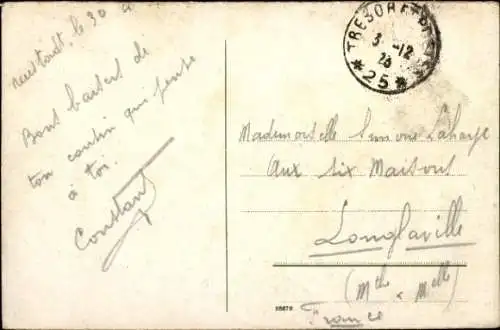 le 30
Bons baisers de
ton cousin qui pense
à toi.
Constant
TRESOR ET POSTES
3 -12
* 25 *
Mademoiselle Simone Lahaye
Aux six Maisons
Longlaville
(Mthe & Mselle)
France